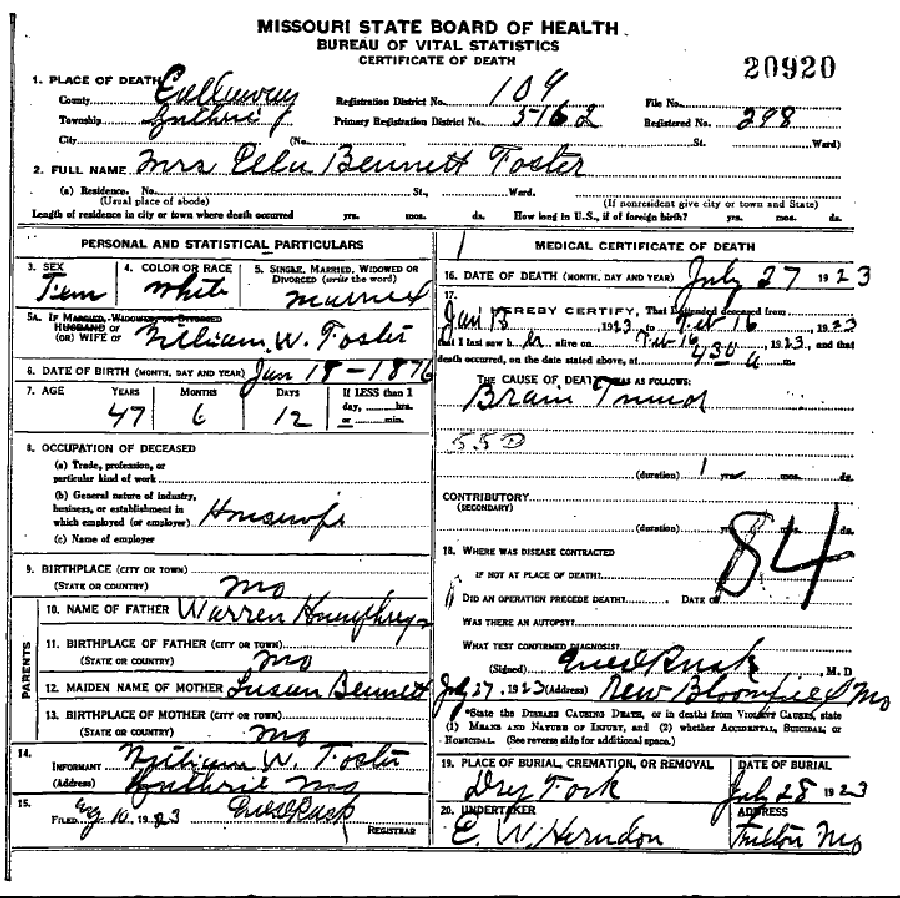 MISSOURI STATE BOARD OF HEALTH
BUREAU OF VITAL STATISTICS
CERTIFICATE OF DEATH
20920
1. PLACE OF DEATH
County Callaway Registration District No. 109 File No.
Township Guthrie Primary Registration District No. 5162 Registered No. 298
City (No. St. Ward)
2. FULL NAME Mrs Ella Bennett Foster
(a) Residence. No. St., Ward.
(Usual place of abode) (If nonresident give city or town and State)
Length of residence in city or town where death occurred yrs. mos. ds. How long in U.S., if of foreign birth? yrs. mos. ds.
PERSONAL AND STATISTICAL PARTICULARS
3. SEX Fem
4. COLOR OR RACE White
5. SINGLE, MARRIED, WIDOWED OR DIVORCED (write the word) Married
5A. IF MARRIED, WIDOWED OR DIVORCED
HUSBAND OF
(OR) WIFE OF William W. Foster
6. DATE OF BIRTH (MONTH, DAY AND YEAR) Jan 18-1876
7. AGE YEARS MONTHS DAYS If LESS than 1
day, hrs.
47 6 12 or min.
8. OCCUPATION OF DECEASED
(a) Trade, profession, or
particular kind of work
(b) General nature of industry,
business, or establishment in
which employed (or employer) Housewife
(c) Name of employer
9. BIRTHPLACE (CITY OR TOWN)
(STATE OR COUNTRY) Mo
PARENTS
10. NAME OF FATHER Warren Humphreys
11. BIRTHPLACE OF FATHER (CITY OR TOWN)
(STATE OR COUNTRY) Mo
12. MAIDEN NAME OF MOTHER Susan Bennett
13. BIRTHPLACE OF MOTHER (CITY OR TOWN)
(STATE OR COUNTRY) Mo
14.
INFORMANT William W. Foster
(Address) Guthrie Mo
15.
FILED 10, 1923
REGISTRAR
1
MEDICAL CERTIFICATE OF DEATH
16. DATE OF DEATH (MONTH, DAY AND YEAR) July 27 1923
17.
I HEREBY CERTIFY, That I attended deceased from
Jan 13, 1923, to Feb 16, 1923
that I last saw her alive on Feb 16, 1923, and that
death occurred, on the date stated above, at 430 a m.
THE CAUSE OF DEATH WAS AS FOLLOWS:
Brain Tumor
55D
(duration) 1 yrs. mos. ds.
CONTRIBUTORY
(SECONDARY)
(duration) yrs. mos. ds.
84
18. WHERE WAS DISEASE CONTRACTED
IF NOT AT PLACE OF DEATH?
DID AN OPERATION PRECEDE DEATH? DATE OF
WAS THERE AN AUTOPSY?
WHAT TEST CONFIRMED DIAGNOSIS?
(Signed) , M.D
July 27, 1923 (Address) New Bloomfield Mo
*State the DISEASE CAUSING DEATH, or in deaths from VIOLENT CAUSES, state
(1) MEANS AND NATURE OF INJURY, and (2) whether ACCIDENTAL, SUICIDAL, or
HOMICIDAL. (See reverse side for additional space.)
19. PLACE OF BURIAL, CREMATION, OR REMOVAL DATE OF BURIAL
Dry Fork July 28 1923
20. UNDERTAKER ADDRESS
E. W. Herndon Fulton Mo